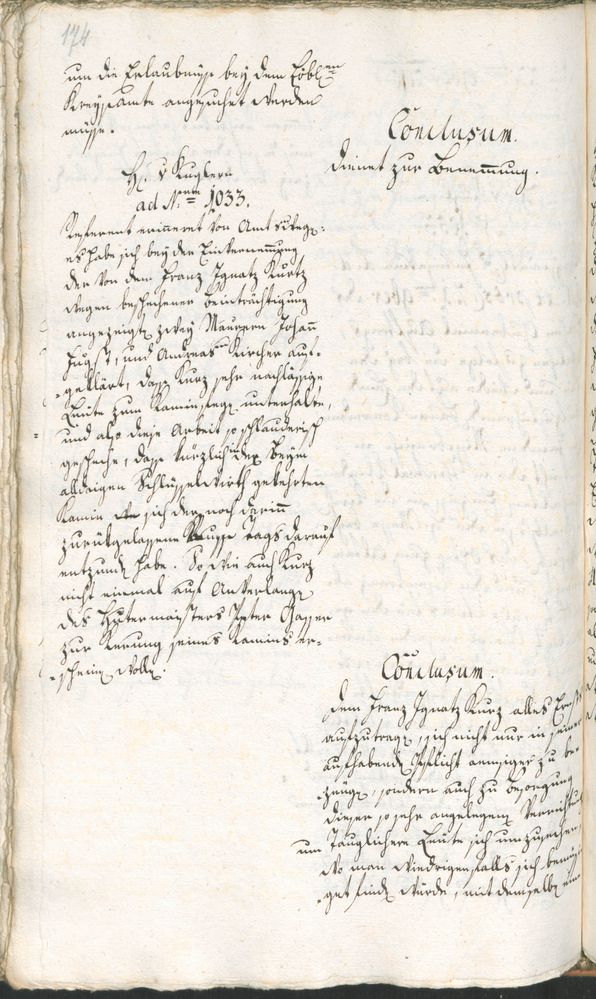 174
um die Erlaubnuß bey dem Löbl:en
Kreysamte angesuchet werden
müsse.
Conclusum.
Dienet zur Benennung.
H: v Kuglern
ad N.um 1033.
Referent erinneret von Amtswegen:
es habe sich bey der Einvernemung
der von dem Franz Ignatz Kurtz
wegen beschehener Beinträchtigung
angezeigten zwey Maurern Johann
und Andreas Kircher auf-
geklärt, dass Kurz sehr nachlässige
Leute zum Kaminfegen unterhalte,
und also diese Arbeit so schlauderisch
geschehe, dass kürzlich in dem beym
alldasigen Schlüsselwirth gekehrten
Kamin sich der noch darinn
zurückgelassene Russe tags darauf
entzunden habe. So wie auch Kurz
nicht einmal auf Anverlangen
des Hutermeisters Peter Gasser
zur Kerung seines Kamins er-
scheinen wollen.
Conclusum.
dem Franz Ignatz Kurz alles Ernst
aufzutragen, sich nicht nur in seiner
aufhabenden Pflicht emsiger zu be-
zeugen, sondern auch zu Besorgung
dieser so sehr angelegenen Verrichtung
um Tauglichere Leute sich umzusehen,
wo man wiedrigenfalls sich bemüs-
get finden würde, mit demselben